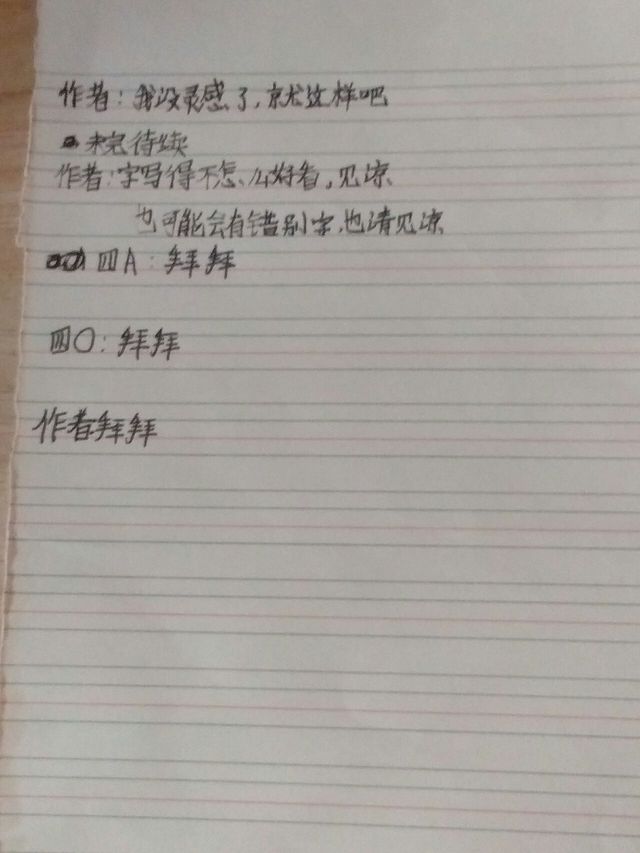 作者:我没灵感了,就这样吧
未完待续
作者:字写得不怎么好看,见谅
也可能会有错别字,也请见谅
四A:拜拜
四O:拜拜
作者拜拜